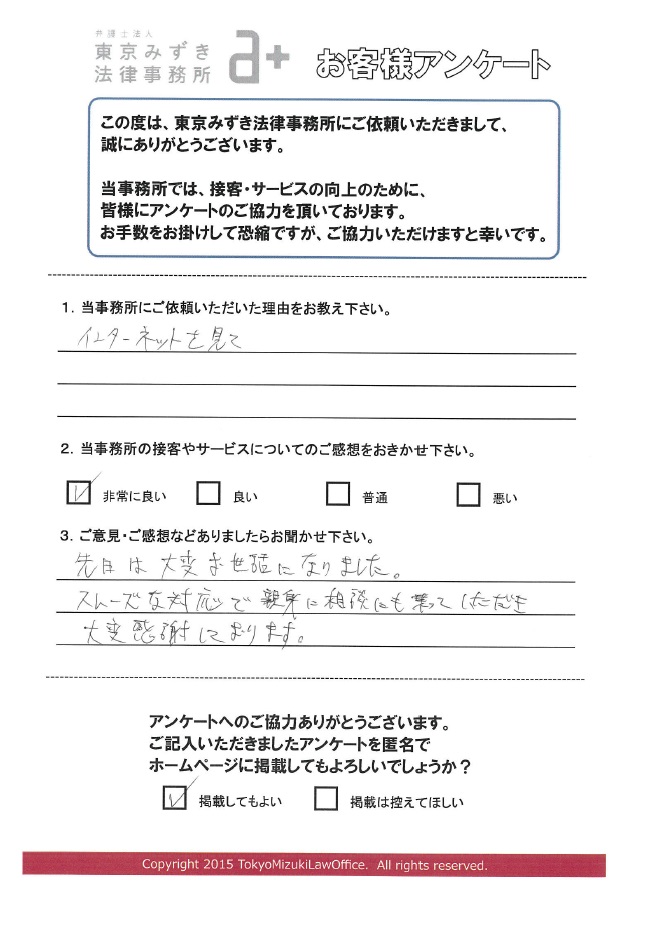 弁護士法人
東京みずき
法律事務所
a+
お客様アンケート
この度は、東京みずき法律事務所にご依頼いただきまして、
誠にありがとうございます。
当事務所では、接客・サービスの向上のために、
皆様にアンケートのご協力を頂いております。
お手数をお掛けして恐縮ですが、ご協力いただけますと幸いです。
1. 当事務所にご依頼いただいた理由をお教え下さい。
インターネットを見て
2. 当事務所の接客やサービスについてのご感想をおきかせ下さい。
非常に良い 良い 普通 悪い
3. ご意見・ご感想などありましたらお聞かせ下さい。
先日は大変お世話になりました。
スムーズな対応で親身に相談にも乗っていただき
大変感謝しております。
アンケートへのご協力ありがとうございます。
ご記入いただきましたアンケートを匿名で
ホームページに掲載してもよろしいでしょうか？
掲載してもよい 掲載は控えてほしい
Copyright 2015 TokyoMizukiLawOffice. All rights reserved.